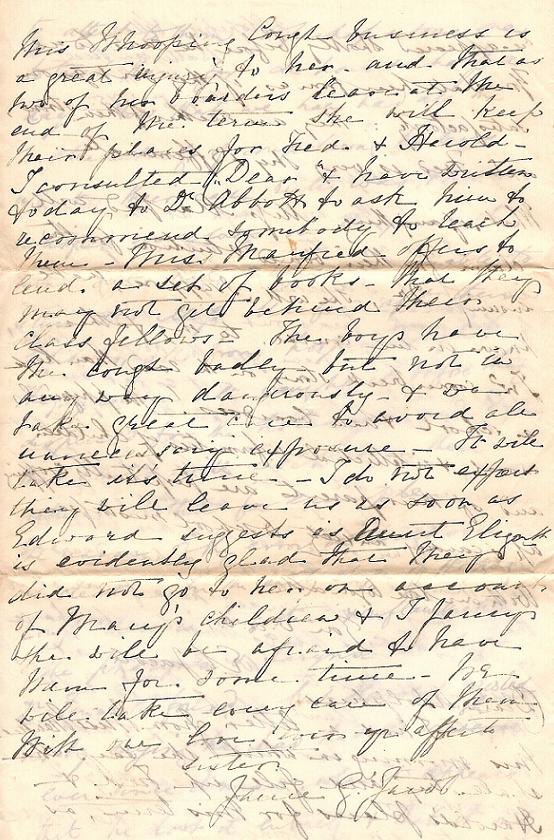 this Whooping Cough business is
a great injury to her. and that as
two of her boarders leave at the
end of the term she will keep
their places for Fred. & Herold -
I consulted "Dear" & have written
today to Dr Abbott to ask him to
recommend somebody to teach
them - Mrs. Manfred offers to
lend. a set of books - that they
may not get behind their
class fellows - The boys have
the cough badly but not in
any way dangerously - & we
take great care to avoid all
unnecessary exposure - It will
take its time - I do not expect
they will leave us as soon as
Edward suggests as Aunt Elizath
is evidently glad that they
did not go to her on account
of Mary's children & I fancy
she will be afraid to have
them for some time - We
will take every care of them
With our love ever yr affecte
sister
Janie G.